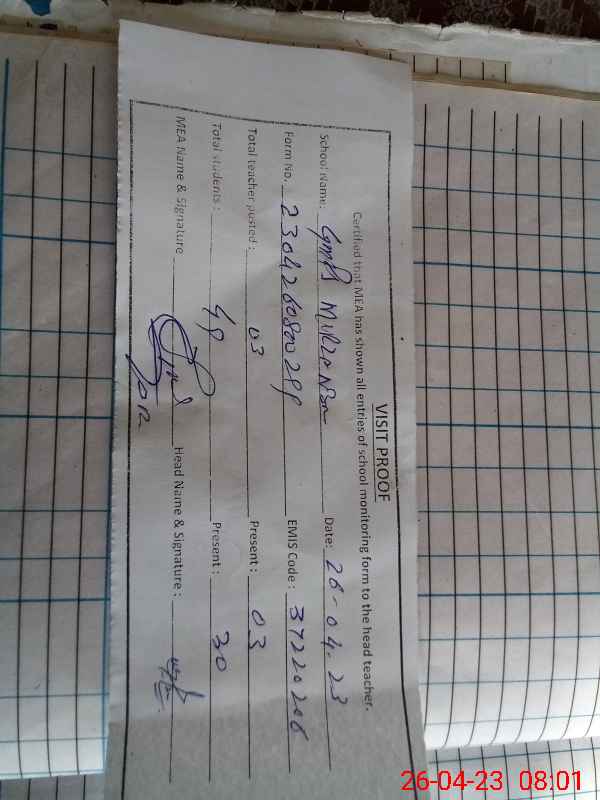 VISIT PROOF
Certified that MEA has shown all entries of school monitoring form to the head teacher.
School Name: GMPS Date: 26-04-23
Form No. EMIS Code: 37220206
Total teacher posted: 03 Present: 03
Total students: Present: 30
MEA Name & Signature Head Name & Signature:
26-04-23 08:01